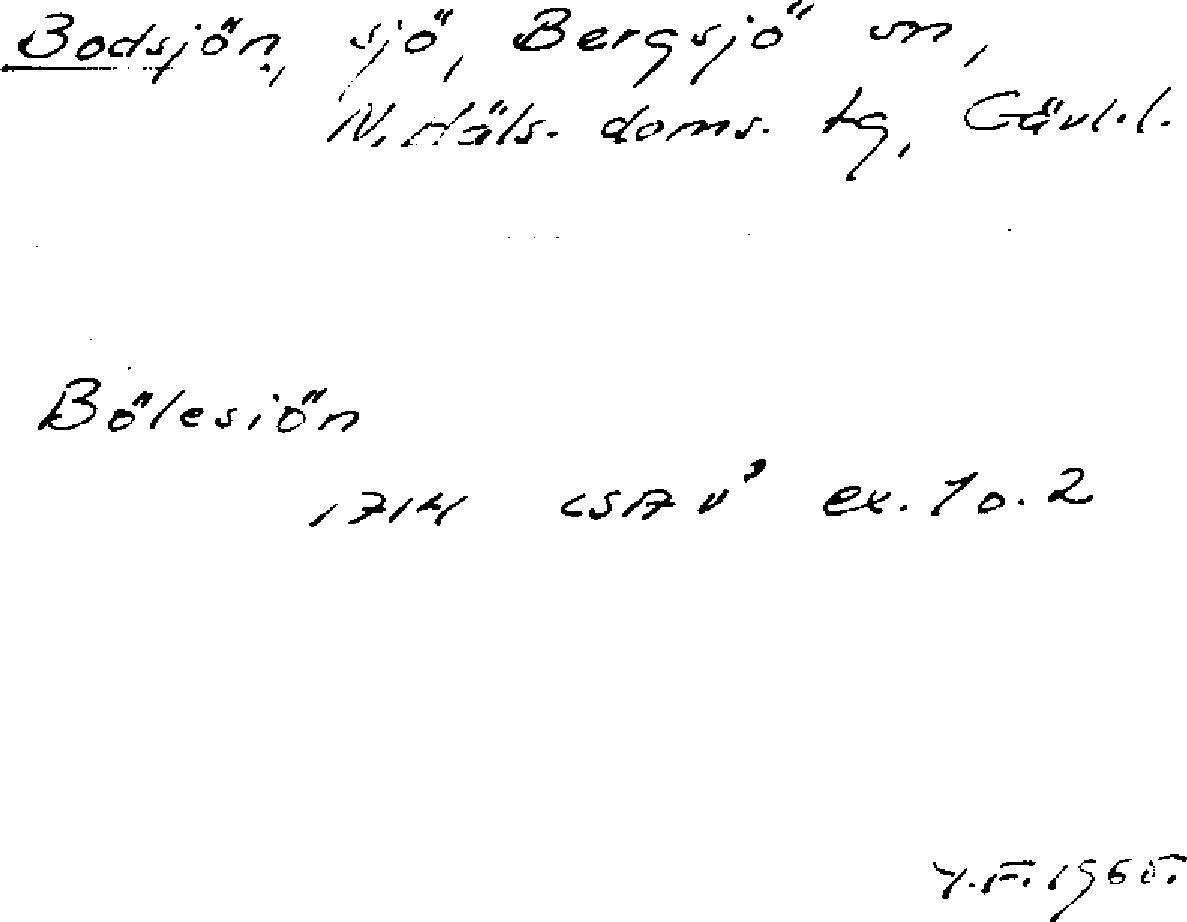 Bodsjön, sjö, Bergsjö sn,
N. Häls. doms. tg, Gävl.l.
Bölesiön
1714 LSA V³ ex. 1 o. 2
Y.F. 1965.